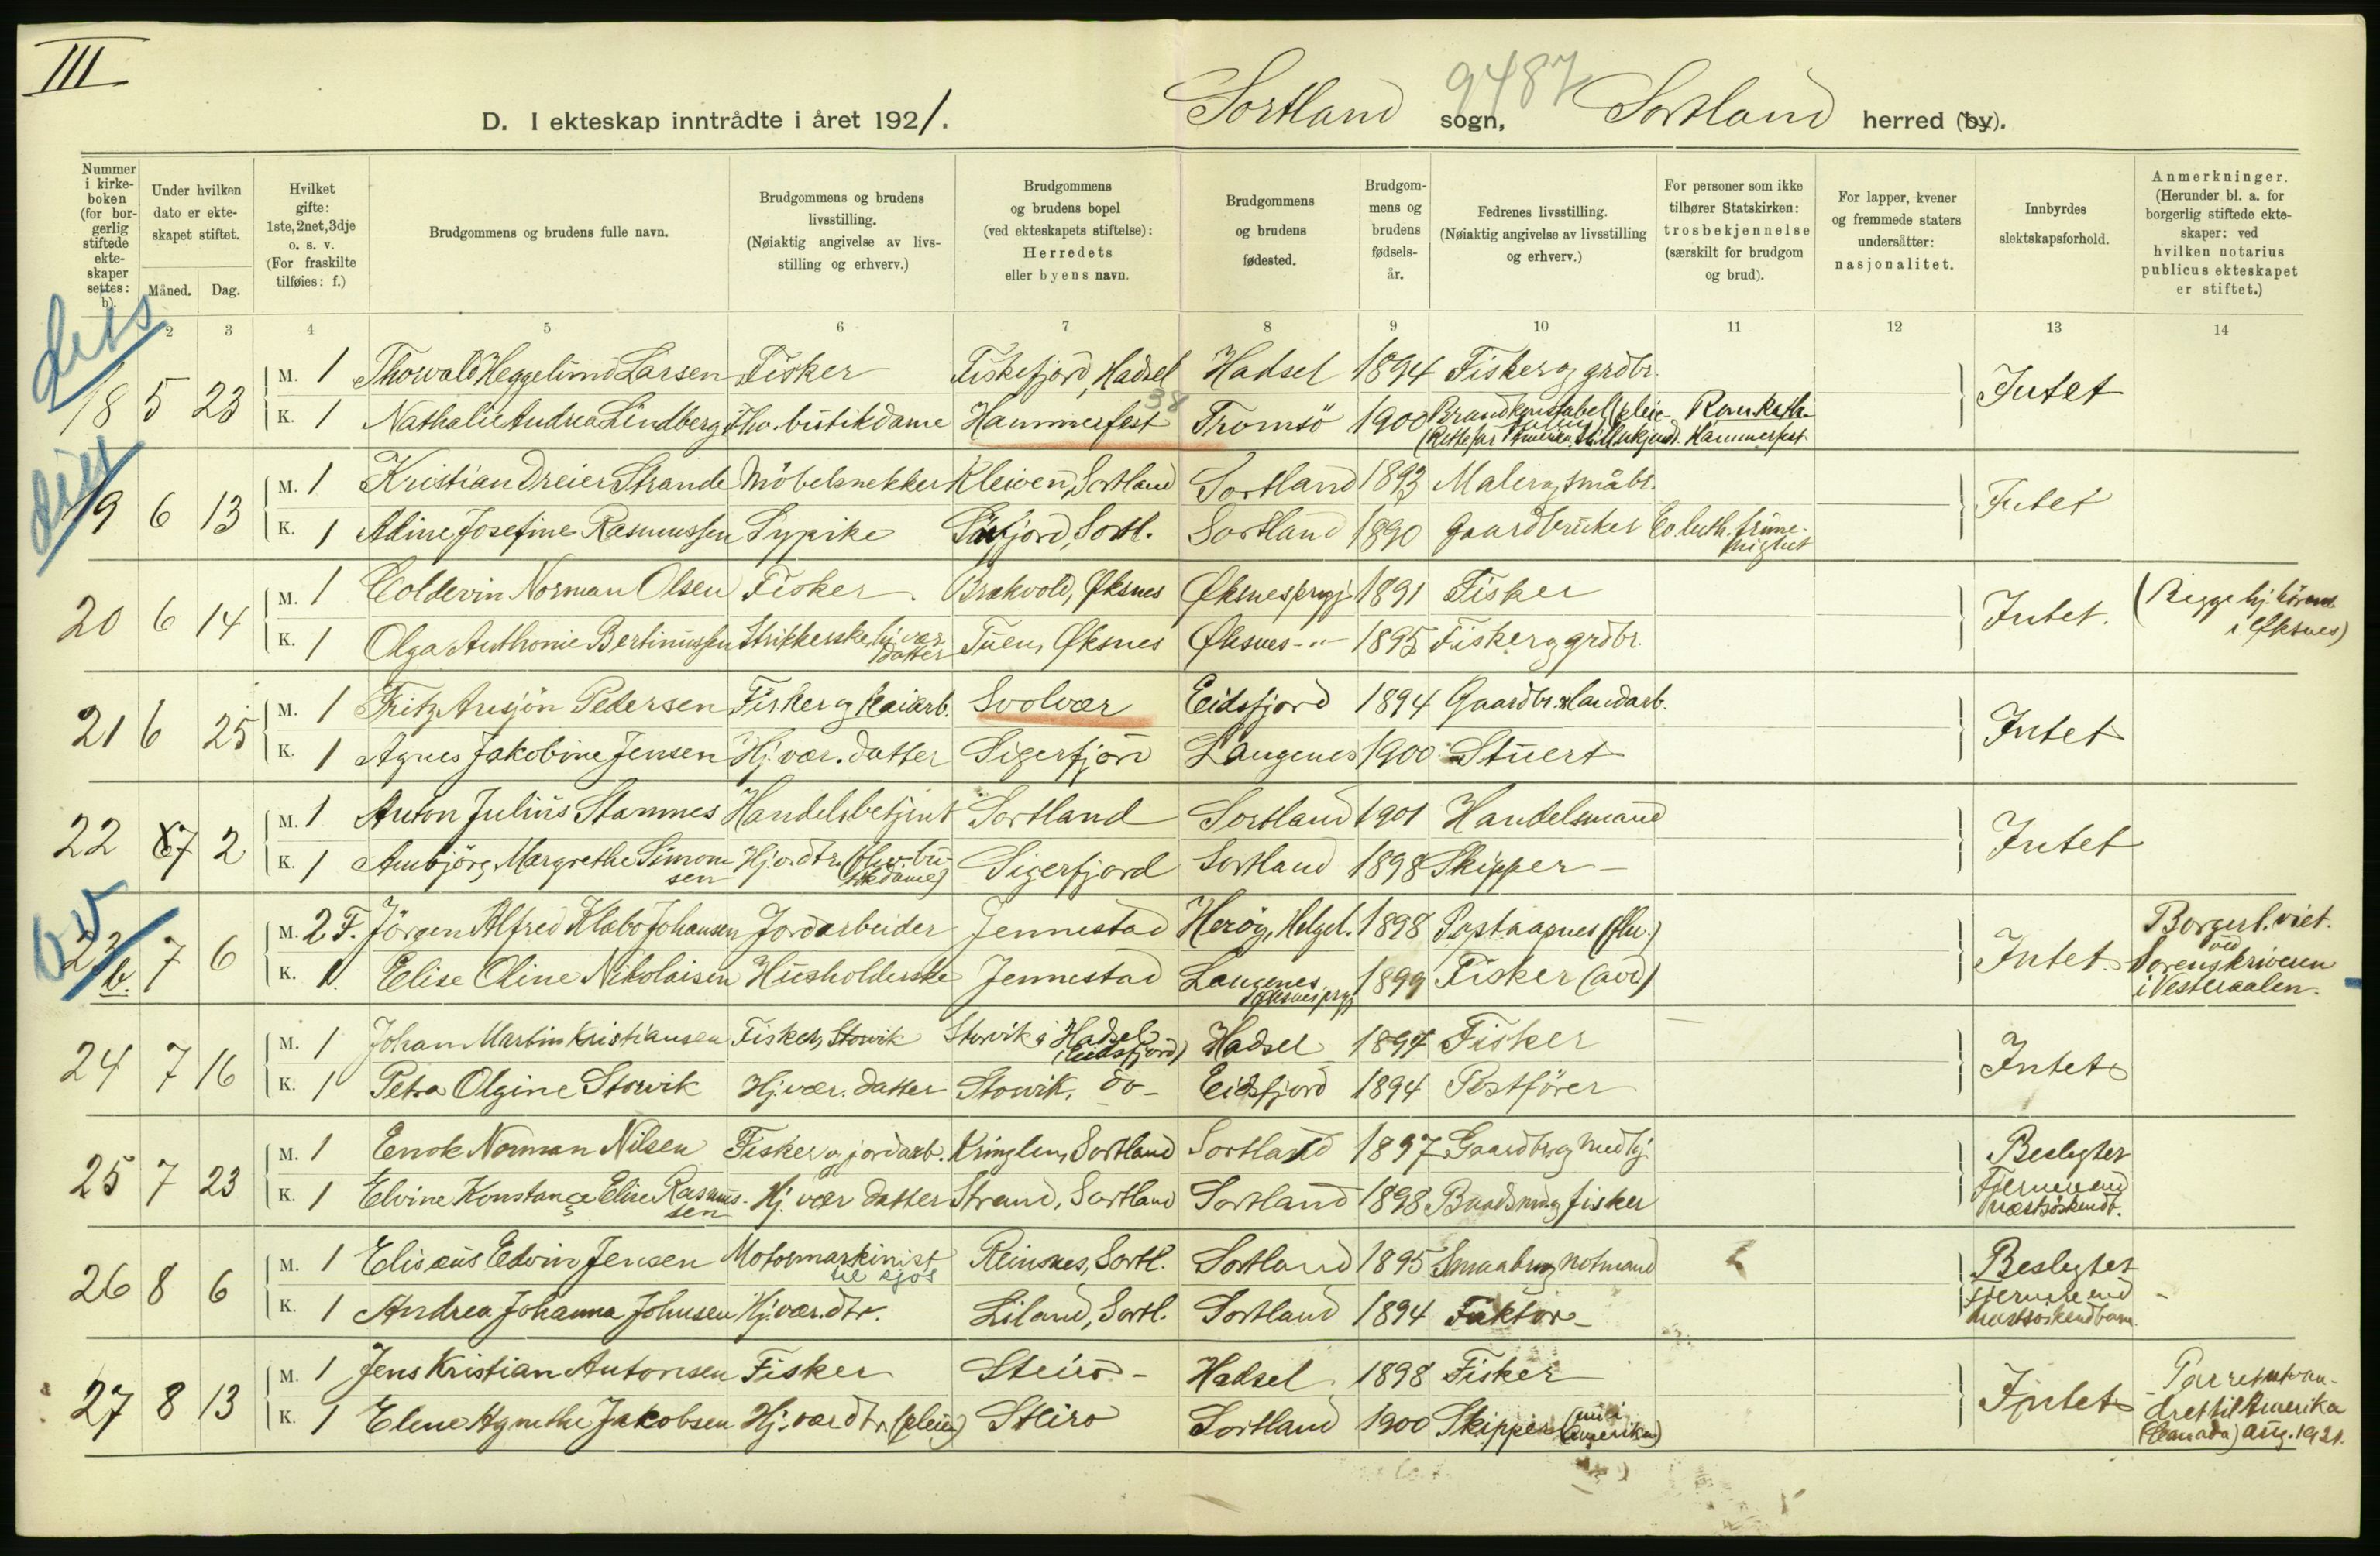 III
9487
D. I ekteskap inntrådte i året 1921. Sortland sogn, Sortland herred (by).
Nummer i kirkeboken (for borgerlig stiftede ekteskaper settes: b).
Under hvilken dato er ekteskapet stiftet.
Måned. Dag.
Hvilket gifte: 1ste, 2net, 3dje o. s. v. (For fraskilte tilføies: f.)
Brudgommens og brudens fulle navn.
Brudgommens og brudens livsstilling. (Nøiaktig angivelse av livsstilling og erhverv.)
Brudgommens og brudens bopel (ved ekteskapets stiftelse): Herredets eller byens navn.
Brudgommens og brudens fødested.
Brudgommens og brudens fødselsår.
Fedrenes livsstilling. (Nøiaktig angivelse av livsstilling og erhverv.)
For personer som ikke tilhører Statskirken: trosbekjennelse (særskilt for brudgom og brud).
For lapper, kvener og fremmede staters undersåtter: nasjonalitet.
Innbyrdes slektskapsforhold.
Anmerkninger. (Herunder bl. a. for borgerlig stiftede ekteskaper: ved hvilken notarius publicus ekteskapet er stiftet.)
2 3 4 5 6 7 8 9 10 11 12 13 14
18 5 23 M. 1 Thorvald Heggelund Larsen Fisker Fiskefjord, Hadsel Hadsel 1894 Fisker og grdbr. Intet
K. 1 Nathalie Andrea Lindberg fhv. butikdame Hammerfest 38 Tromsö 1900 Brandkonstabel (pleie- Rom. Kath. Hammerfest
19 6 13 M. 1 Kristian Dreier Strande Möbelsnekker Kleiven, Sortland Sortland 1893 Maler og småbr. Intet
K. 1 Adine Josefine Rasmussen Sypike Sortl. Sortland 1890 Gaardbruker Ev. luth. frimenighet
20 6 14 M. 1 Coldevin Norman Olsen Fisker Brakvold, Øksnes Øksnes prgj. 1891 Fisker Intet. (Begge hj. hörende i Øksnes)
K. 1 Olga Anthonie Bertinussen Strikkerske, hj. vær. datter Tuen, Øksnes Øksnes -"- 1895 Fisker og grdbr.
21 6 25 M. 1 Fritz Ansjön Pedersen Fisker og kaiarb. Svolvær Eidsfjord 1894 Gaardbr. & landarb. Intet
K. 1 Agnes Jakobine Jensen Hj. vær. datter Sigerfjord Langenes 1900 Stuert
22 7 2 M. 1 Anton Julius Stamnes Handelsbetjent Sortland Sortland 1901 Handelsmand Intet
K. 1 Ambjörg Margrethe Simonsen Hj. v. dtr. (fhv. butikdame) Sigerfjord Sortland 1898 Skipper
23 b. 7 6 M. 2 F. Jörgen Alfred Klabo Johansen Jordarbeider Jennestad Heröy, Helgel. 1898 Postaapner (fhv.) Intet. Borgerl. viet. ved Sorenskriveren i Vesteraalen.
K. 1 Elise Oline Nikolaisen Husholderske Jennestad Langenes Øksnes prgj. 1899 Fisker (död)
24 7 16 M. 1 Johan Martin Kristiansen Fisker, Storvik Storvik i Hadsel (Eidsfjord) Hadsel 1894 Fisker Intet
K. 1 Petra Olgine Storvik Hj. vær. datter Storvik, do- Eidsfjord 1894 Postförer
25 7 23 M. 1 Enok Norman Nilsen Fisker og jordarb. Kringlen, Sortland Sortland 1897 Gaardbr. og Beslegtet fjernere end næstsöskendb.
K. 1 Elvine Konstance Elise Rasmussen Hj. vær datter Strand, Sortland Sortland 1898 Baadsm. og fisker
26 8 6 M. 1 Elisæus Edvin Jensen Motormaskinist til sjös Reinsnes, Sortl. Sortland 1895 Smaabr. og notmand Beslegtet fjernere end næstsöskendbarn
K. 1 Andrea Johanna Johnsen Hj. vær. dtr. Liland, Sortl. Sortland 1894 Faktor
27 8 13 M. 1 Jens Kristian Antonsen Fisker Steiro Hadsel 1898 Fisker Intet Parret utvandret til Amerika (Canada) aug. 1921.
K. 1 Elene Agnethe Jakobsen Hj. vær dtr. (pleie) Steiro Sortland 1900 Skipper (nu i Amerika)